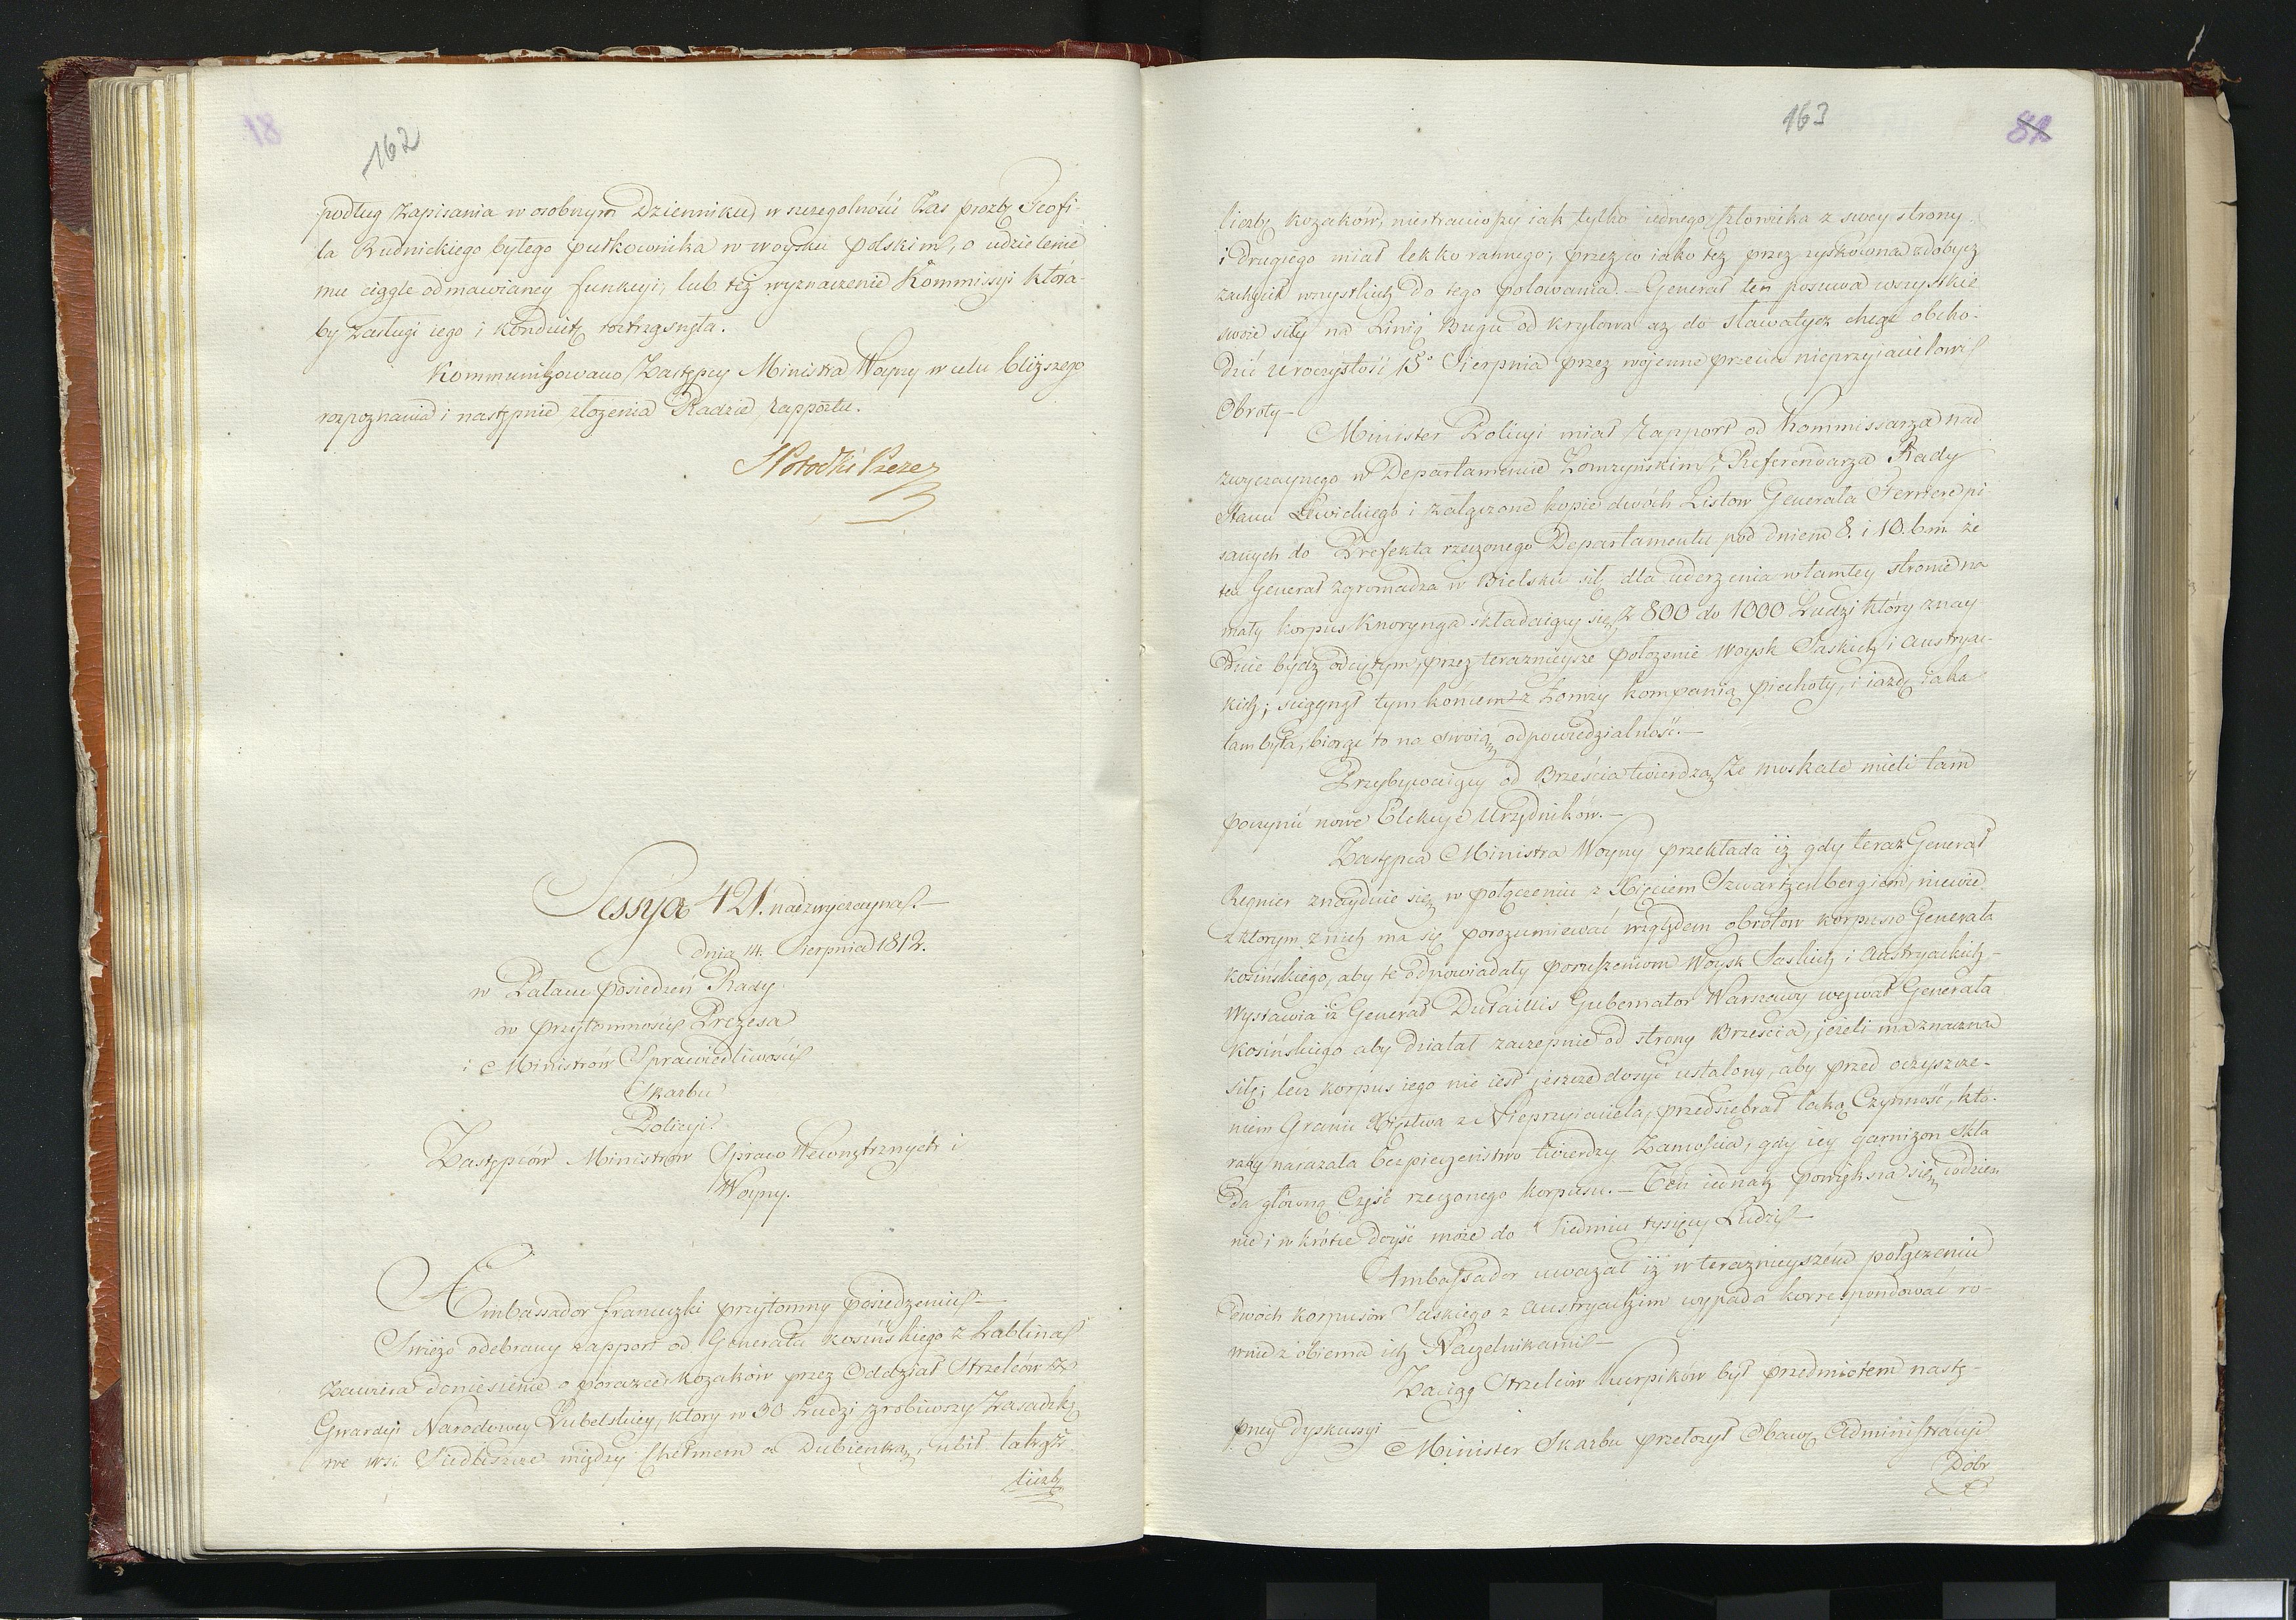 18
162
podług zapisania w osobnym Dzienniku, w szczegolności zas prozby Teofi-
la Rudnickiego byłego pułkownika w woysku polskim, o udzielenie
mu ciągle odmawianey funkcyi, lub też wyznaczenie Kommissyi która-
by zasługi iego i konduitę roztrząsnęła.
Kommunikowano Zastępcy Ministra Woyny w celu bliższego
rozpoznania i następnie złożenia Radzie rapportu.
SPotocki Prezes
Sessya 421. nadzwyczayna.—
dnia 14. Sierpnia 1812.
w Pałacu posiedzeń Rady
w przytomności Prezesa
i Ministrów Sprawiedliwości
Skarbu
Policyi
Zastępców Ministrów Spraw Wewnętrznych i
Woyny.
Ambassador francuzki przytomny posiedzeniu.—
Swieżo odebrany rapport od Generała Kosińskiego z Lublina
zawiera doniesienie o porażce kozaków przez Oddział Strzelców z
Gwardyi Narodowey Lubelskiey, ktory w 30 ludzi zrobiwszy zasadzkę
we wsi Siedliszcze między Chełmem a Dubienką, ubił takąż
liczbę
163
81
liczbę kozaków, niestraciwszy iak tylko iednego człowieka z swey strony
i drugiego miał lekko rannego; przez co iako też przez zyskowną zdobycz
zachęcił wszystkich do tego polowania.— Generał ten posuwa wszystkie
swoie siły na Linię Bugu od Kryłowa aż do Sławatycz chcąc obcho-
dzić uroczystość 15o Sierpnia przez wojenne przeciw nieprzyiacielowi
Obroty—
Minister Policyi miał rapport od Kommissarza nad
zwyczaynego w Departamencie Łomżyńskim, Referendarza Rady
Stanu Lewickiego i załączone kopie dwóch Listow Generała Ferriere pi
sanych do Prefekta rzeczonego Departamentu pod dniem 8. i 10. b.m. że
ten Generał zgromadza w Bielsku siły dla uderzenia w tamtey stronie na
mały korpus Knorynga składaiący się z 800 do 1000 Ludzi który znay
dzie bydz odciętym, przez teraznieysze położenie Woysk Saskich i Austryac-
kich; sciągnął tym końcem z Łomży kompanią piechoty, i iazdę iaka
tam była, biorąc to na swoią odpowiedzialność.—
Przybywaiący od Brześcia twierdzą że moskale mieli tam
poczynić nowe Elekcye Urzędników.—
Zastępca Ministra Woyny przekłada iż gdy teraz Generał
Regnier znayduie się w połączeniu z Xięciem Szwartzenbergiem, niewie
z ktorym z nich ma się porozumiewać względem obrotow korpusu Generała
Kosińskiego, aby te odpowiadały poruszeniom Woysk Saskich i Austryackich.—
Wystawia iż Generał Dutaillis Gubernator Warszawy wezwał Generała
Kosińskiego aby działał zaczepnie od strony Brześcia, jeżeli ma znaczną
siłę; lecz korpus iego nie iest jeszcze dosyć ustalony, aby przed oczyszcze-
niem Granic Xięstwa z Nieprzyiaciela, przedsiębrał taką Czynność, któ-
raby narazała bezpieczeństwo twierdzy Zamościa, gdy iey garnizon skła
da główną Część rzeczonego korpusu.— Ten iednak powiększa się codzien
nie i w krótce doyść może do Siedmiu tysięcy Ludzi—
Ambassador uważał iż w teraznieyszém połączeniu
dwóch korpusów Saskiego z Austryackim wypada korrespondować ro-
wnie z obiema ich Naczelnikami—
Zaciąg Strzelców Kurpików był przedmiotem nastę-
pney dyskussyi
Minister Skarbu przełożył Obawę Administracyi
Dobr